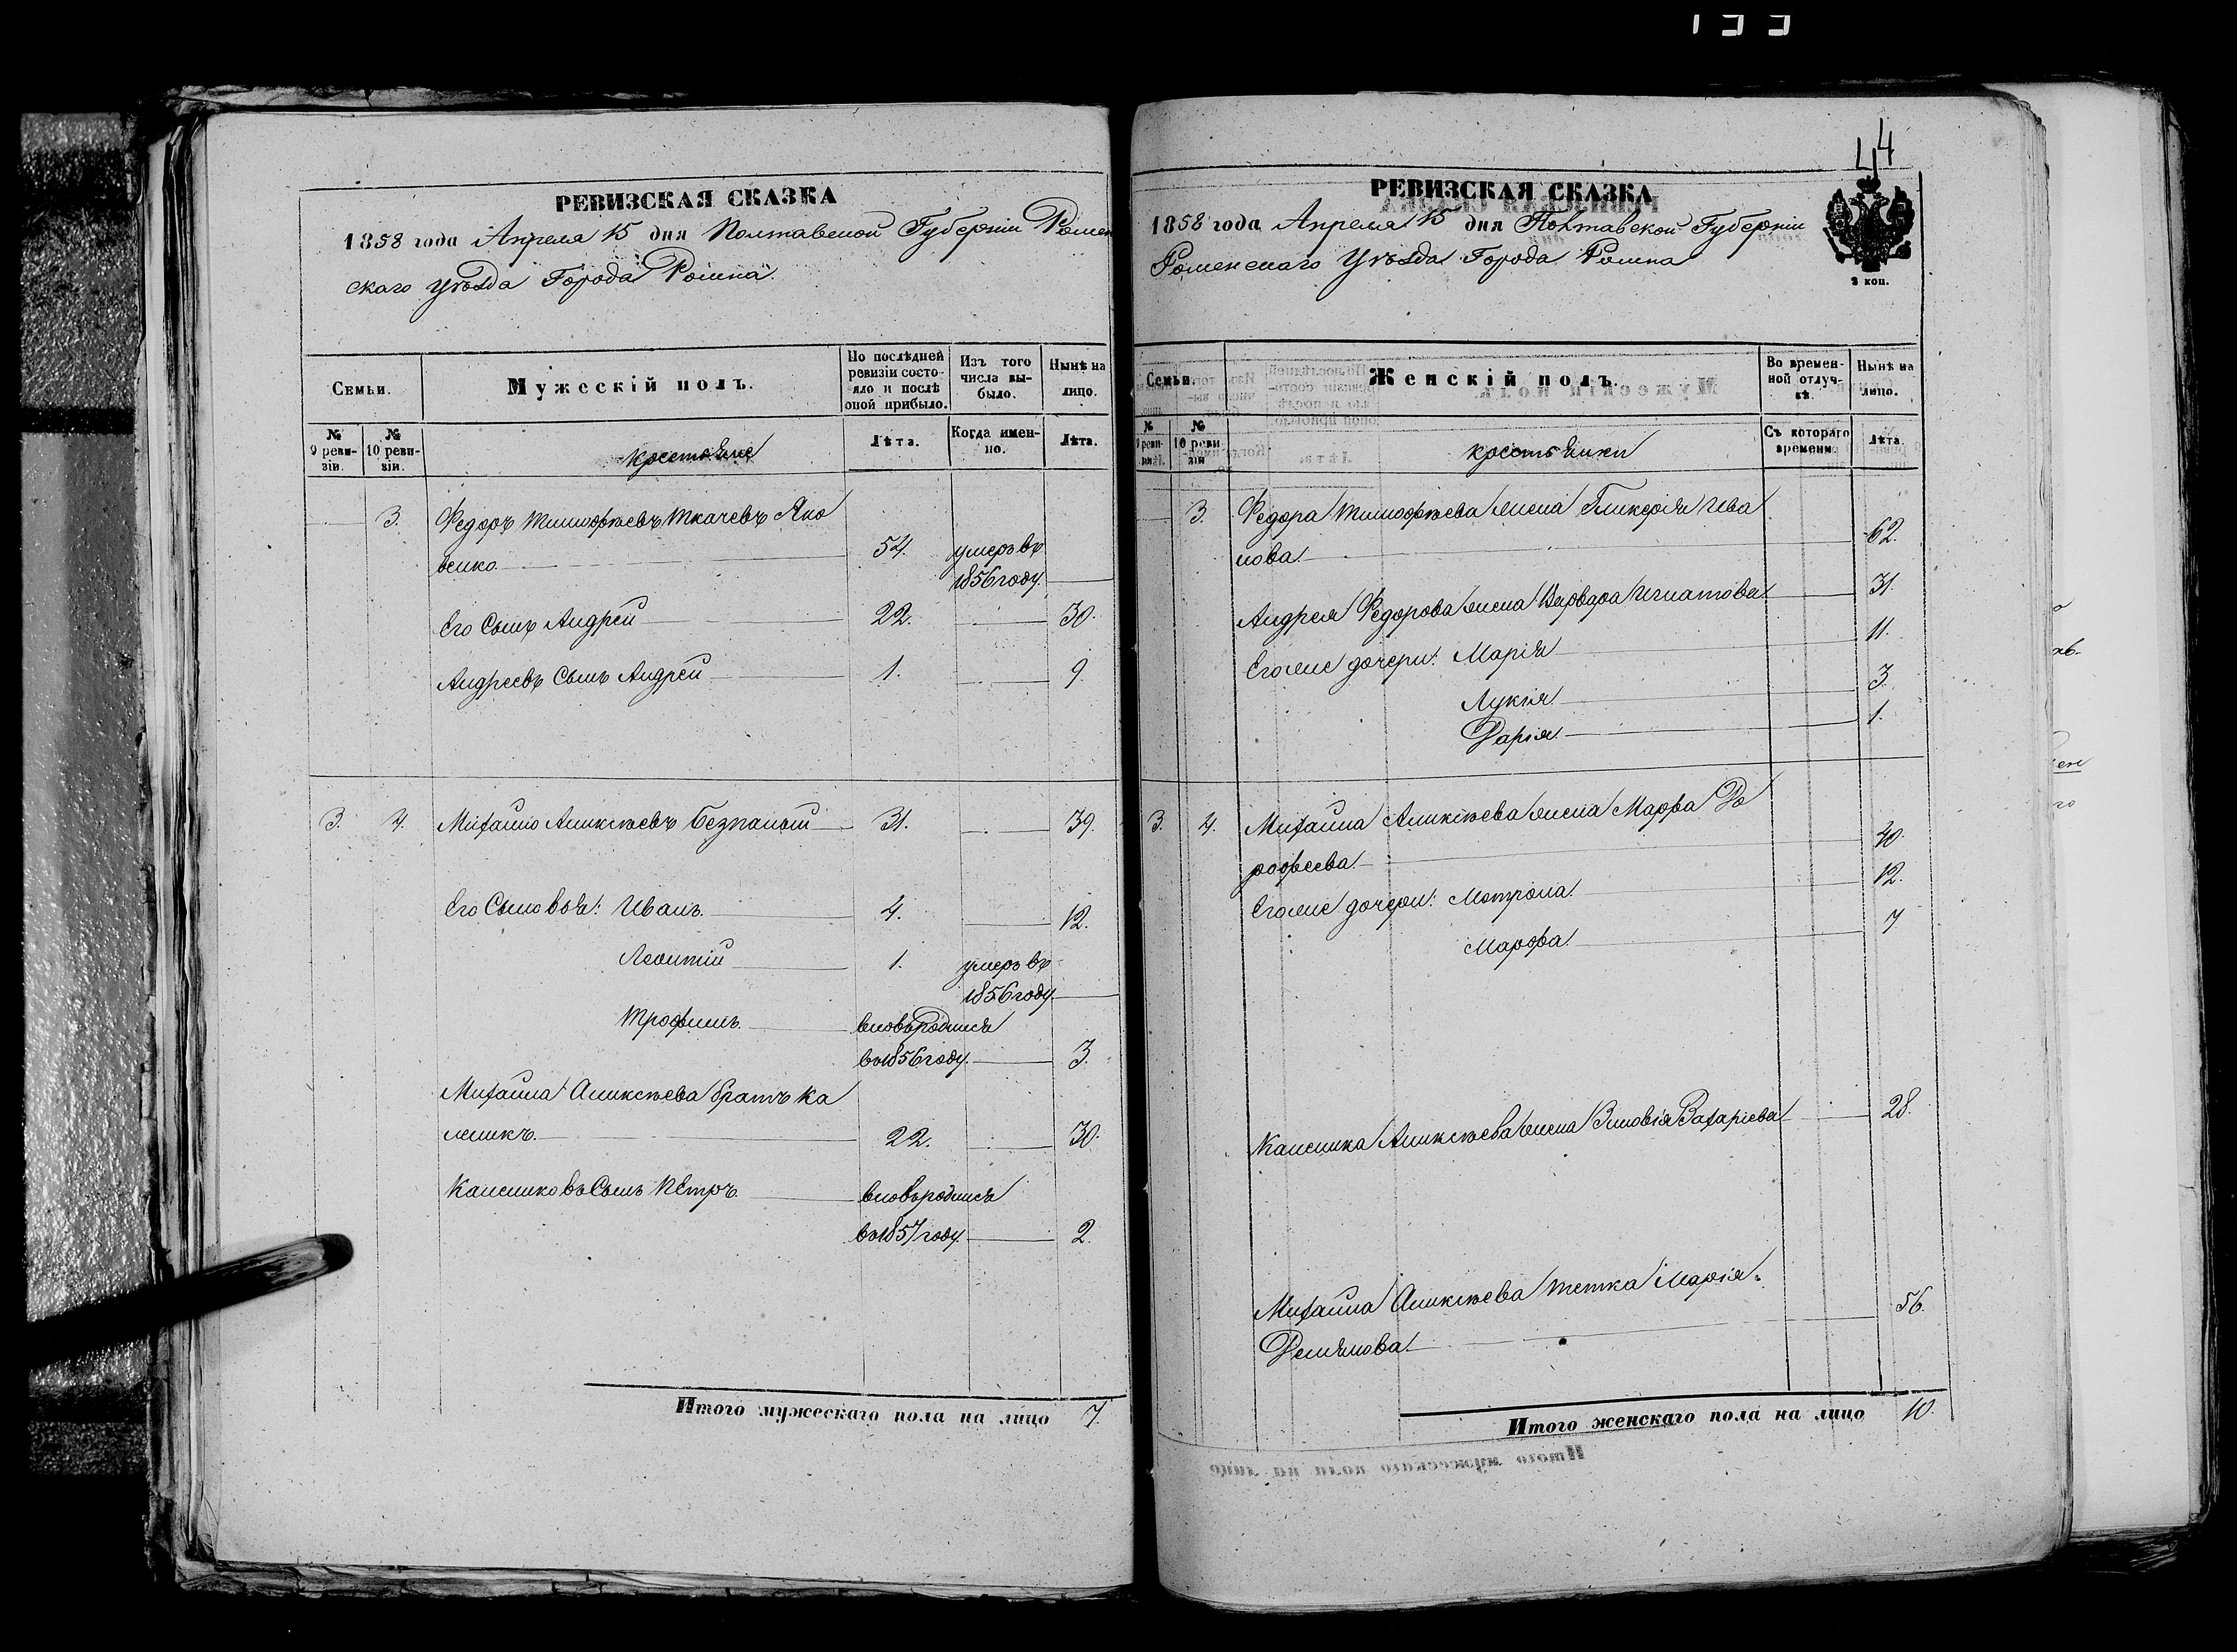 44
РЕВИЗСКАЯ СКАЗКА
1858 года Апреля 15 дня Полтавской Губерніи Ромен
скаго уѣзда Города Ромна.
Семьи.
Мужескій полъ.
По послѣдней ревизіи состо-
яло и послѣ
оной прибыло.
Изъ того
числа вы-
было.
Нынѣ на
лицо.
№
9 реви-
зіи.
№
10 реви-
зіи.
крестьяне
Лѣта.
Когда имен-
но.
Лѣта.
3. Федоръ Тимофѣевъ Ткачевъ Яко
венко 54. умеръ въ
1856 году.
Его Сынъ Андрей 22. 30.
Андреевъ Сынъ Андрей 1. 9
3. 4. Михайло Алексѣевъ Безпалый 31. 39.
Его Сыновья: Иванъ 4. 12.
Леонтій 1. умеръ въ
1856 году.
Трофимъ вновьродился
въ 1856 году. 3.
Михайла Алексѣева братъ Ка
леникъ 22. 30.
Калениковъ Сынъ Петръ вновьродился
въ 1857 году 2.
Итого мужескаго пола на лицо 7.
РЕВИЗСКАЯ СКАЗКА
1858 года Апреля 15 дня Полтавской Губерніи
Роменскаго Уѣзда Города Ромна
2 коп.
Семьи.
Женскій полъ.
Во времен-
ной отлуч-
кѣ.
Нынѣ на
лицо.
№
9 реви-
зіи.
№
10 реви-
зіи
крестьянки
Съ котораго
времени.
Лѣта.
3. Федора Тимофѣева жена Гликерія Ива
нова 62.
Андрея Федорова жена Варвара Игнатова 31.
Его же дочери: Марія 11.
Лукія 3.
Дарія 1.
3. 4. Михайла Алексѣева жена Марфа До
рофеева 40.
Его же дочери: Мотрона 12.
Марфа 7
Каленика Алексѣева жена Зиновія Захаріева 28.
Михайла Алексѣева тетка Марія
Демянова 56.
Итого женскаго пола на лицо 10.